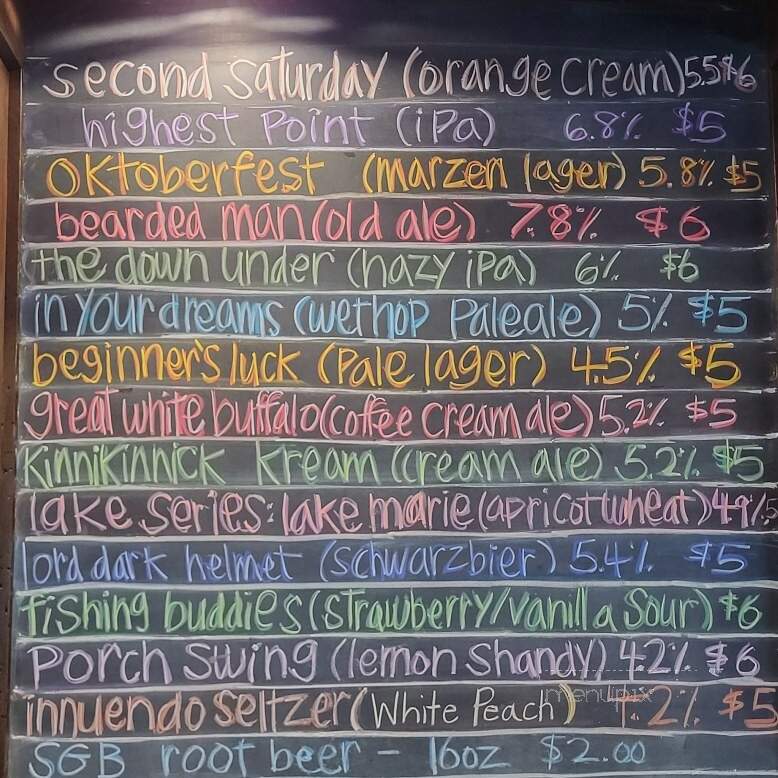 second saturday (orange cream) 5.5% $6
highest Point (iPa) 6.8% $5
Oktoberfest (marzen lager) 5.8% $5
bearded man (old ale) 7.8% $6
the down under (hazy iPa) 6% $6
in your dreams (wethop Paleale) 5% $5
beginner's luck (Pale lager) 4.5% $5
great white buffalo (coffee cream ale) 5.2% $5
Kinnikinnick kream (cream ale) 5.2% $5
lake series: lake marie (apricot wheat) 4.9% 5
lord dark helmet (schwarzbier) 5.4% $5
fishing buddies (strawberry/vanilla sour) $6
Porch swing (lemon shandy) 4.2% $6
menupix
innuendo seltzer (White Peach) 4.2% $5
SGB root beer - 16oz $2.00